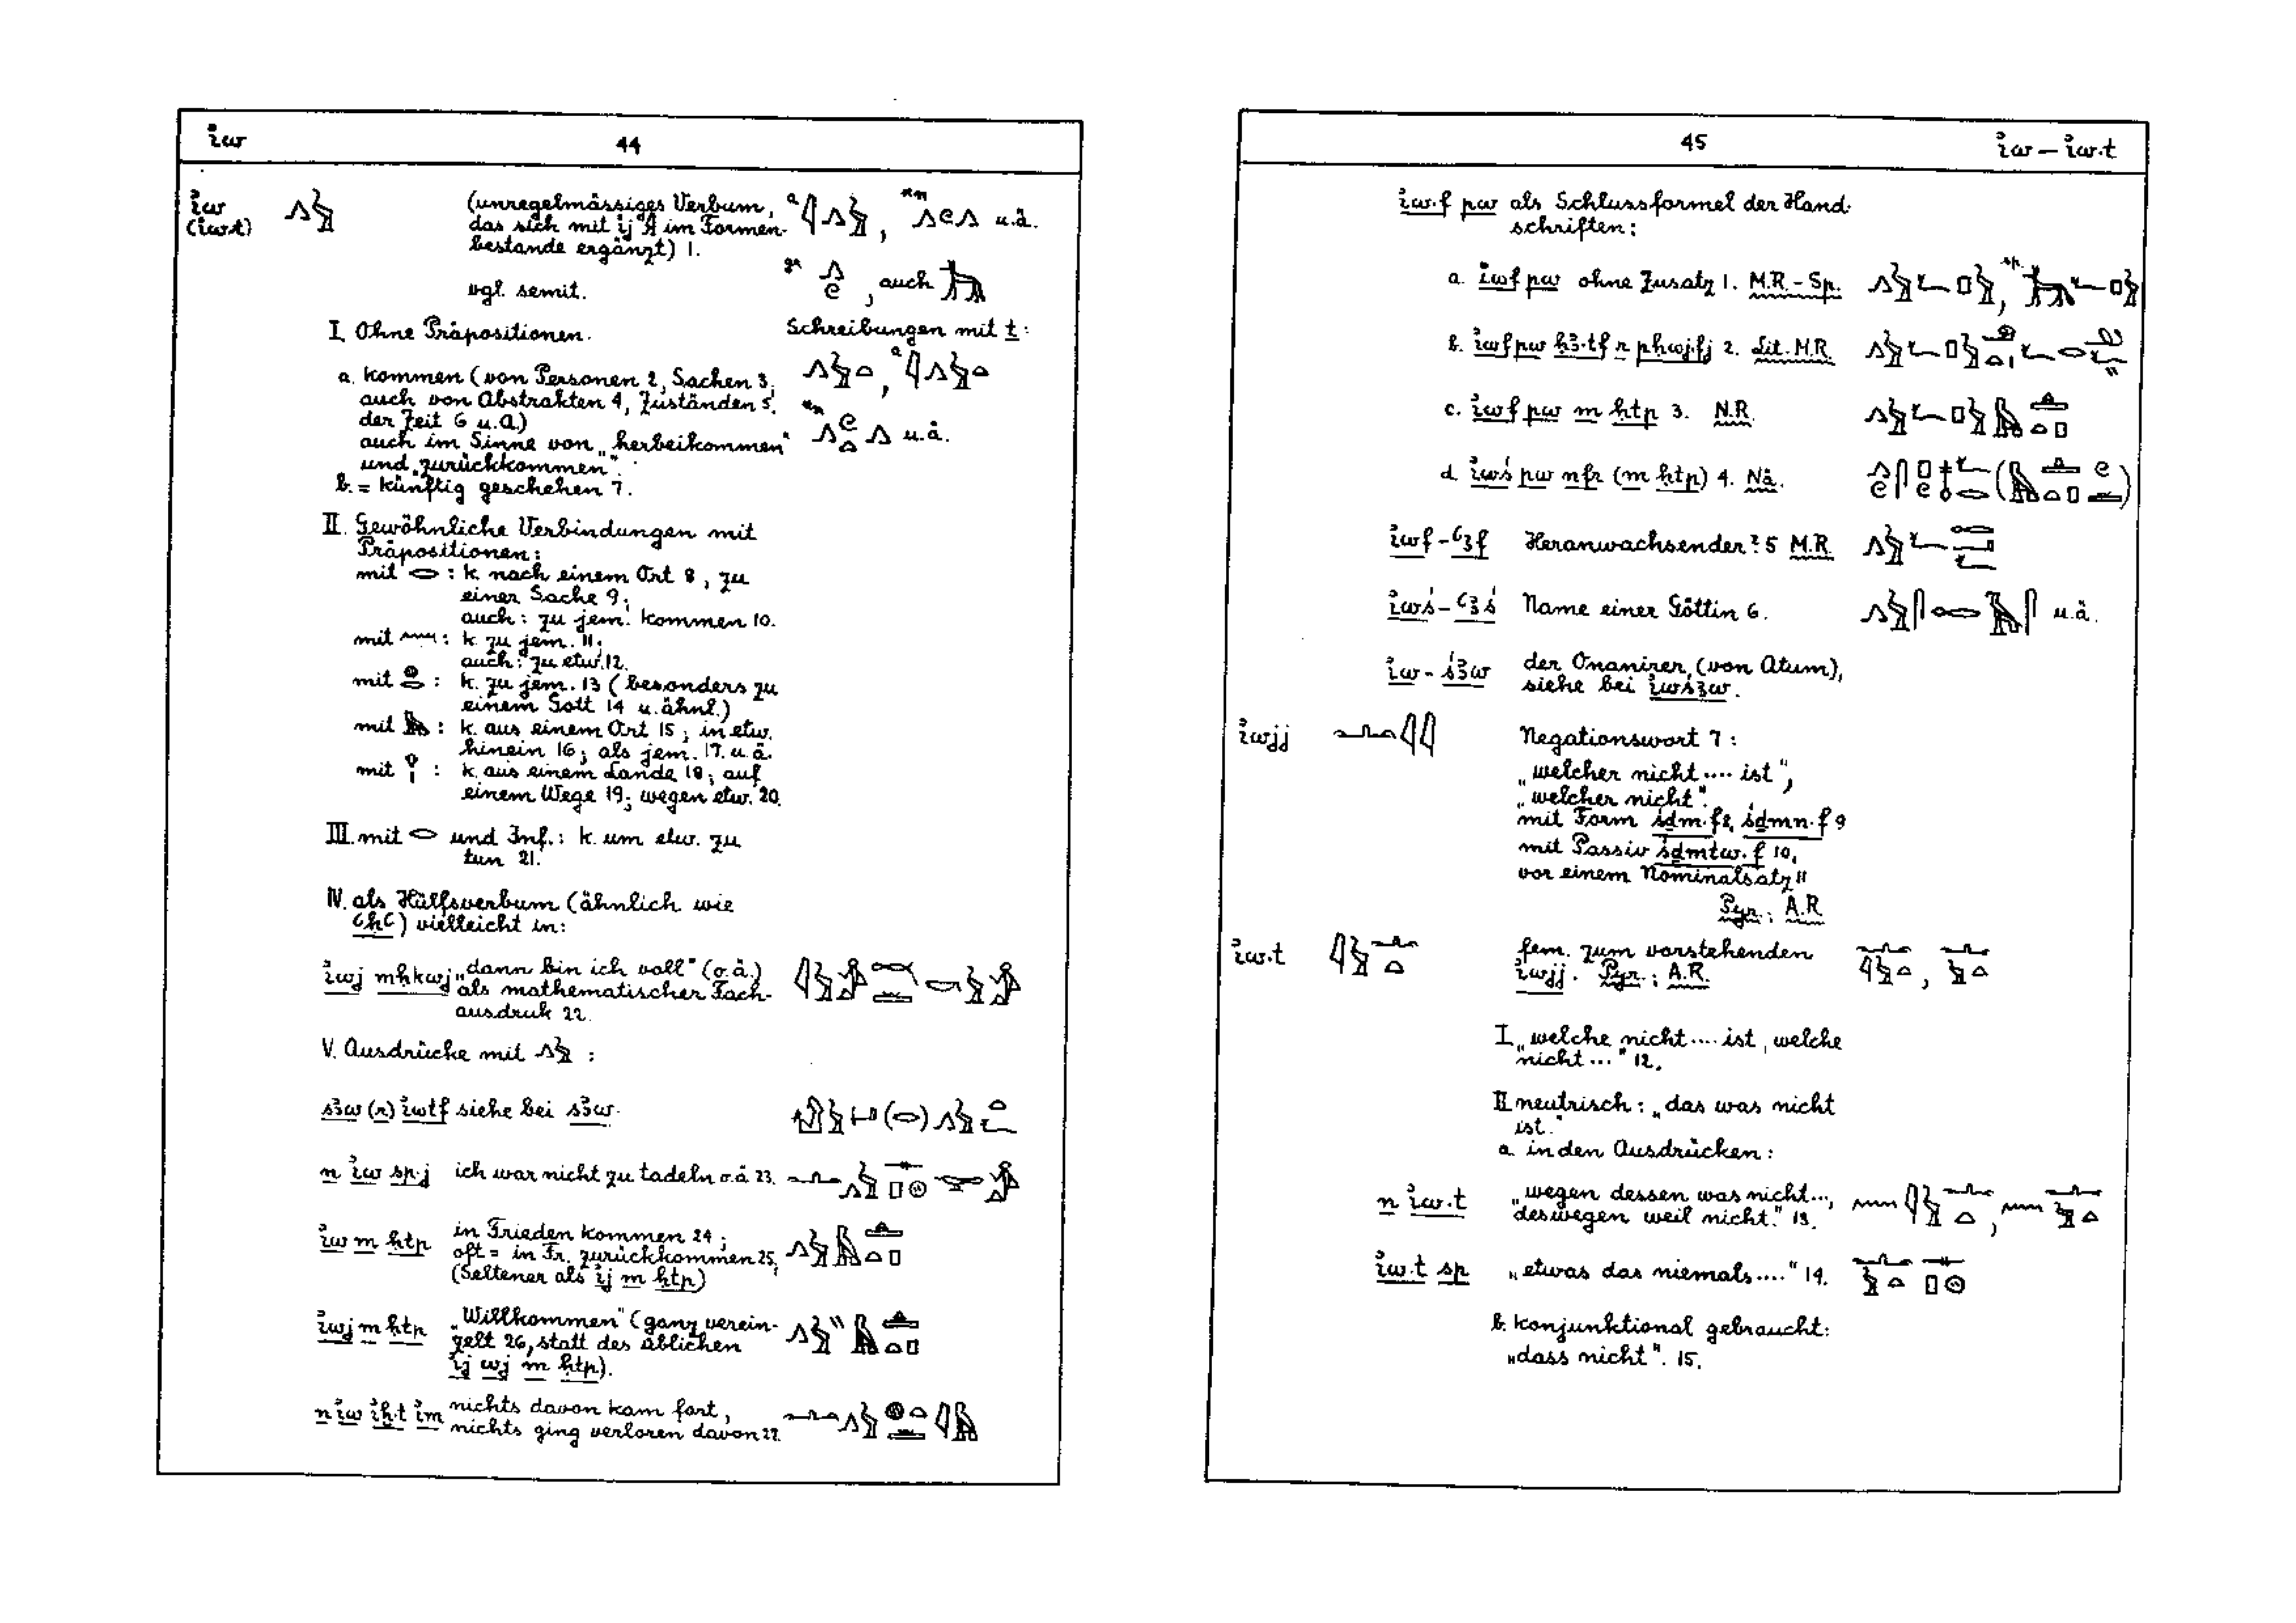 iw 44
iw (unregelmässiges Verbum,
(iw.t) das sich mit ij im Formen-
bestande ergänzt) 1. u.ä.
vgl. semit. auch
I. Ohne Präpositionen. Schreibungen mit t:
a. kommen (von Personen 2, Sachen 3,
auch von Abstrakten 4, Zuständen 5,
der Zeit 6 u.a.)
auch im Sinne von „herbeikommen" u.ä.
und „zurückkommen".
b. = künftig geschehen 7.
II. Gewöhnliche Verbindungen mit
Präpositionen:
mit : k. nach einem Ort 8, zu
einer Sache 9;
auch: zu jem. kommen 10.
mit : k. zu jem. 11;
auch: zu etw. 12.
mit : k. zu jem. 13 (besonders zu
einem Gott 14 u. ähnl.)
mit : k. aus einem Ort 15; in etw.
hinein 16; als jem. 17. u.ä.
mit : k. aus einem Lande 18; auf
einem Wege 19; wegen etw. 20.
III. mit und Inf.: k. um etw. zu
tun 21.
IV. als Hülfsverbum (ähnlich wie
ꜥḥꜥ) vielleicht in:
iwj mḥkwj „dann bin ich voll" (o.ä.)
als mathematischer Fach-
ausdruk 22.
V. Ausdrücke mit :
sꜣw (r) iwtf siehe bei sꜣw.
n iw sp.j ich war nicht zu tadeln o.ä 23.
iw m ḥtp in Frieden kommen 24;
oft = in Fr. zurückkommen 25,
(Seltener als ij m ḥtp)
iwj m ḥtp „Willkommen" (ganz verein-
zelt 26, statt des üblichen
ij wj m ḥtp).
n iw iḫ.t im nichts davon kam fort,
nichts ging verloren davon 27.
45 iw – iw.t
iw.f pw als Schlussformel der Hand-
schriften:
a. iwf pw ohne Zusatz 1. M.R. – Sp. sp.
b. iwf pw ḥꜣ.tf r pḥwj.fj 2. Lit. M.R.
c. iwf pw m ḥtp 3. N.R.
d. iwś pw nfr (m ḥtp) 4. Nä.
iwf-ꜥꜣf Heranwachsender? 5 M.R.
iwś-ꜥꜣś Name einer Göttin 6. u.ä.
iw-śꜣw der Onanirer, (von Atum),
siehe bei iwśꜣw.
iwjj Negationswort 7:
„welcher nicht .... ist",
„welcher nicht".
mit Form śḏm.f 8, śḏmn.f 9
mit Passiv śḏmtw.f 10,
vor einem Nominalsatz 11
Pyr.; A.R.
iw.t fem. zum vorstehenden
iwjj. Pyr.; A.R.
I. „welche nicht .... ist, welche
nicht ..." 12.
II neutrisch: „das was nicht
ist."
a. in den Ausdrücken:
n iw.t „wegen dessen was nicht ...,
deswegen weil nicht." 13.
iw.t sp „etwas das niemals ...." 14.
b. konjunktional gebraucht:
„dass nicht". 15.